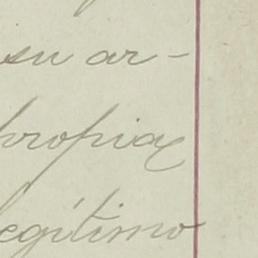 su ar-
propia
legítimo